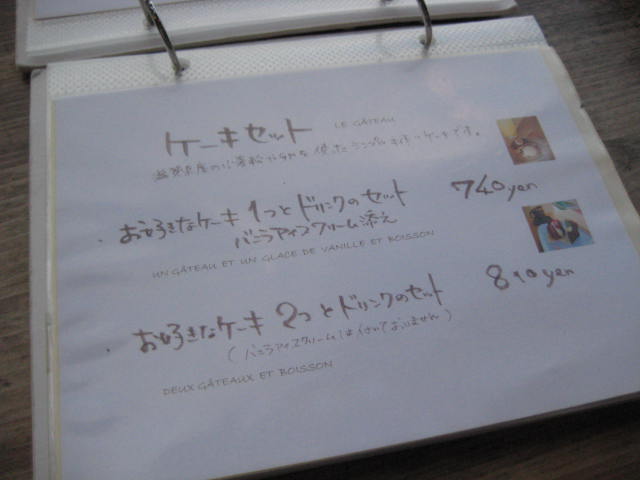 ケーキセット LE GÂTEAU
滋賀県産の小麦粉 使ったシンプル ケーキです。
お好きなケーキ1つとドリンクのセット 740yen
バニラアイスクリーム添え
UN GÂTEAU ET UN GLACE DE VANILLE ET BOISSON
お好きなケーキ2つとドリンクのセット 890yen
(バニラアイスクリームは付いておりません)
DEUX GÂTEAUX ET BOISSON